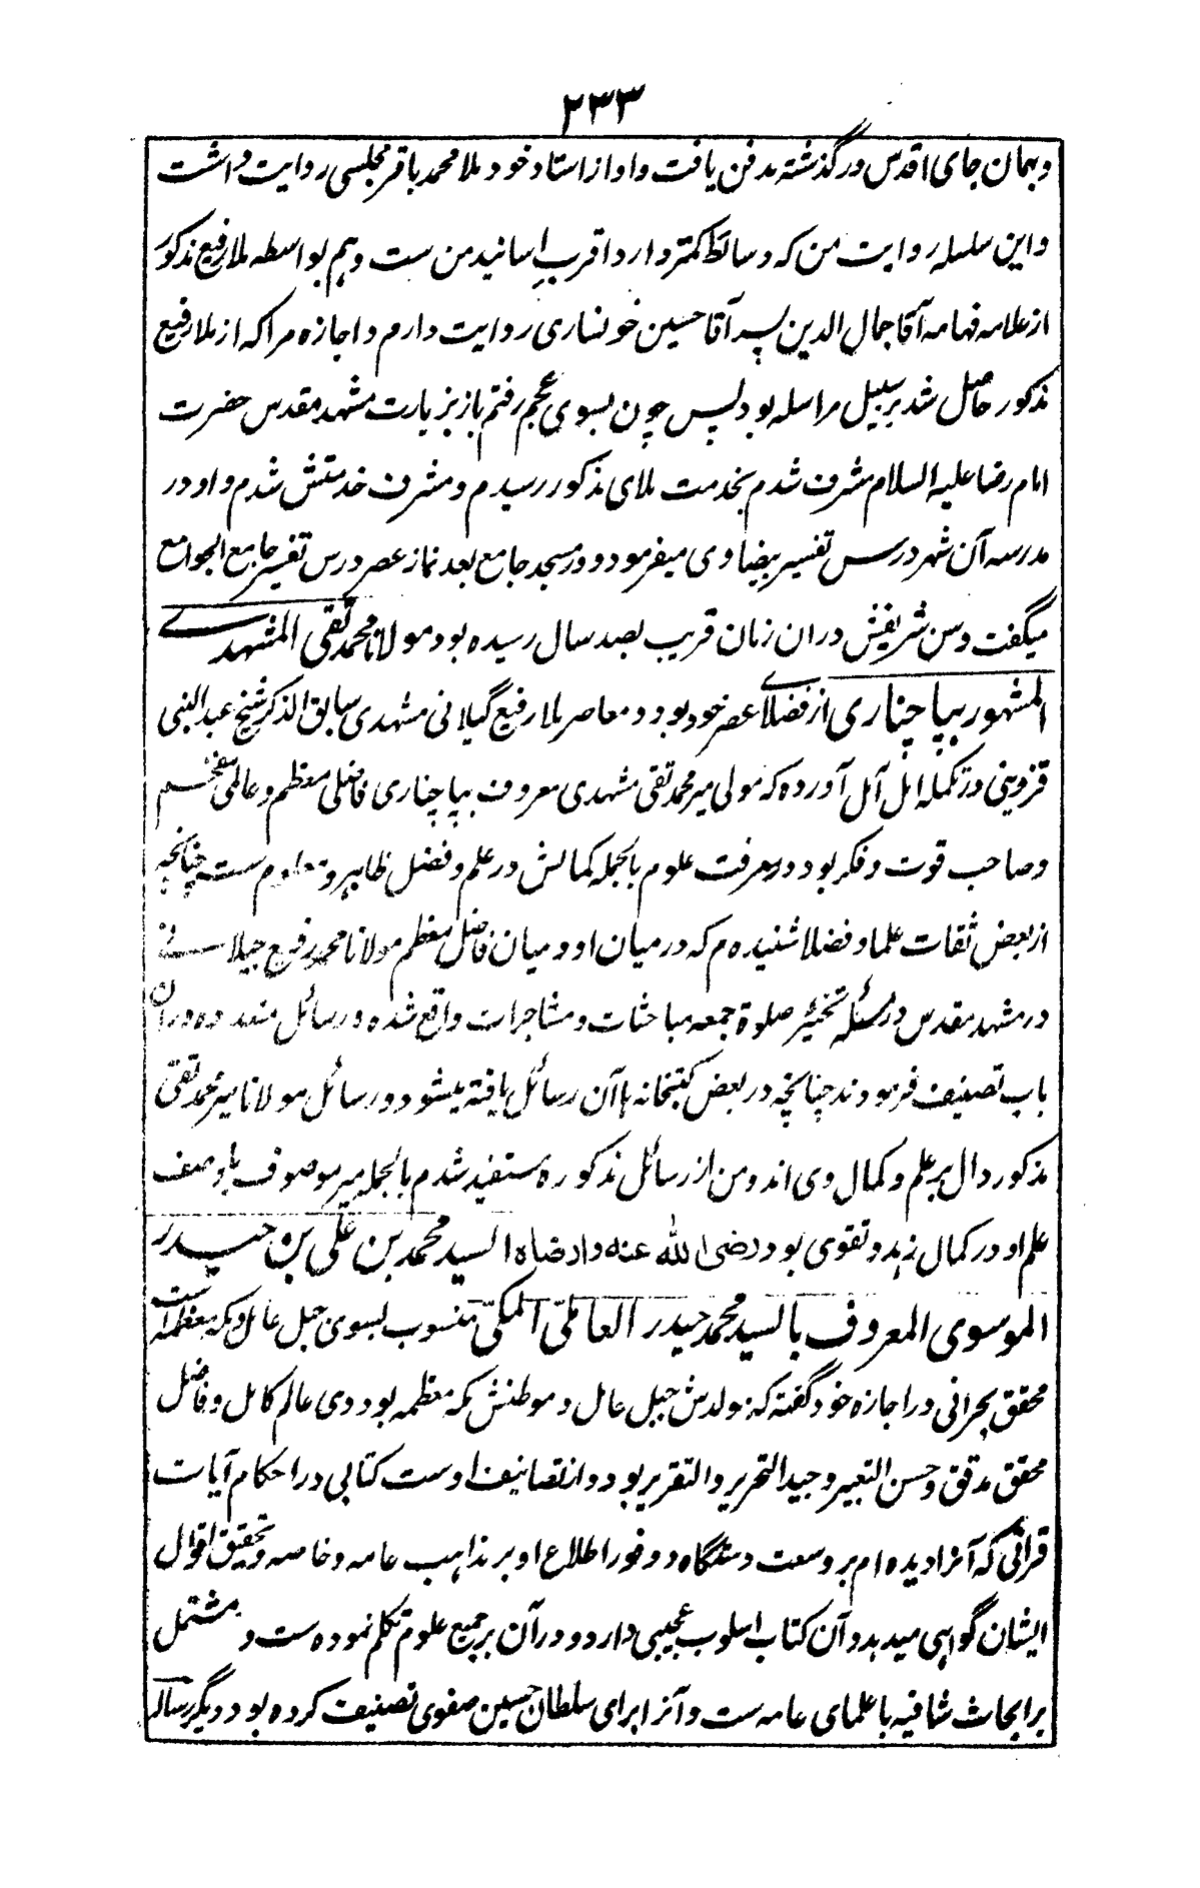 ۲۳۳
وبهمان جای اقدس درگذشته مدفن یافت واو از استاد خود ملا محمد باقر مجلسی روایت داشت
واین سلسله روایت من که وسائط کمتر دارد اقرب اسانید من ست وهم بواسطه ملا رفیع مذکور
از علامه فهامه آقا جمال الدین پسر آقا حسین خونساری روایت دارم واجازه مرا که از ملا رفیع
مذکور حاصل شد بر سبیل مراسله بود پس چون بسوی عجم رفتم باز بزیارت مشهد مقدس حضرت
امام رضا علیه السلام مشرف شدم بخدمت ملای مذکور رسیدم ومشرف خدمتش شدم واو در
مدرسه آن شهر درس تفسیر بیضاوی میفرمود ودر مسجد جامع بعد نماز عصر درس تفسیر جامع الجوامع
میگفت وسن شریفش دران زمان قریب بصد سال رسیده بود مولانا محمد تقی المشهدی
المشهور بپا چناری از فضلای عصر خود بود ومعاصر ملا رفیع گیلانی مشهدی سابق الذکر شیخ عبد النبی
قزوینی در تکمله امل آمل آورده که مولی میر محمد تقی مشهدی معروف بپا چناری فاضلی معظم وعالمی مفخم
وصاحب قوت وفکر بود در معرفت علوم بالجمله کمالش در علم وفضل ظاهر ومعلوم ست چنانچه
از بعض ثقات علما وفضلا شنیده م که درمیان او ومیان فاضل معظم مولانا محمد رفیع جیلانی
در مشهد مقدس در مسئله تخییر صلوة جمعه مباحثات ومشاجرات واقع شده ورسائل متعدده دران
باب تصنیف فرمودند چنانچه در بعض کتبخانه ها آن رسائل یافته میشود ورسائل مولانا میر محمد تقی
مذکور دال بر علم وکمال وی اند ومن از رسائل مذکوره مستفید شدم بالجمله میر موصوف باوصف
علم او در کمال زهد وتقوی بود رضی الله عنه وارضاه السید محمد بن علی بن حیدر
الموسوی المعروف بالسید محمد حیدر العاملی المکی منسوب بسوی جبل عامل ومکه معظمه است
محقق بحرانی در اجازه خود گفته که مولدش جبل عامل وموطنش مکه معظمه بود وی عالم کامل وفاضل
محقق مدقق وحسن التعبیر وجید التحریر والتقریر بود واز تصانیف اوست کتابی در احکام آیات
قرآنی که آنرا دیده ام بر وسعت دستگاه ووفور اطلاع او بر مذاهب عامه وخاصه وتحقیق اقوال
ایشان گواهی میدهد وآن کتاب اسلوب عجیبی دارد ودر آن بر جمیع علوم تکلم نموده ست ومشتمل
بر ابحاث شافیه با علمای عامه ست وآنرا برای سلطان حسین صفوی تصنیف کرده بود ودیگر رساله